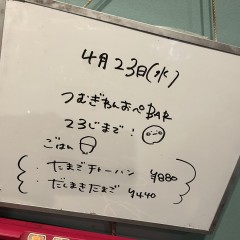 4月23日(水)
つむぎわんおぺBAR
23じまで!
ごはん
たまごチャーハン ¥880
だしまきたまご ¥440